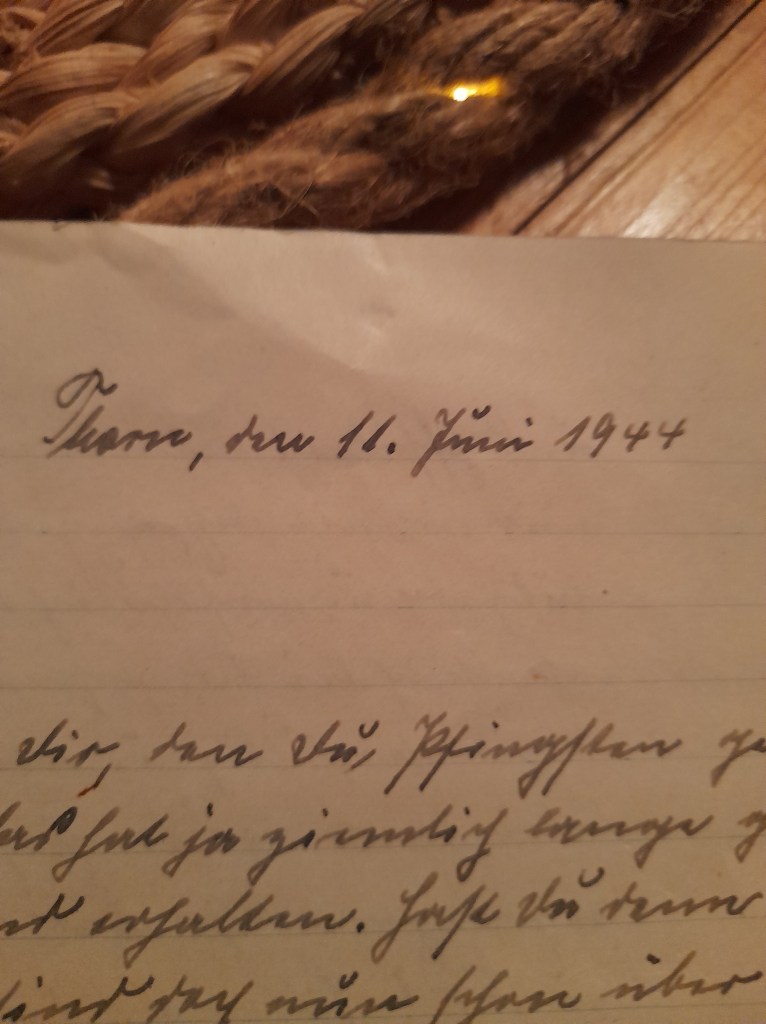 Thorn, den 11. Juni 1944
Dir, den Du, Pfingsten ge
das hat ja ziemlich lange g
nd erhalten. Hast Du denn
sind doch nun schon über